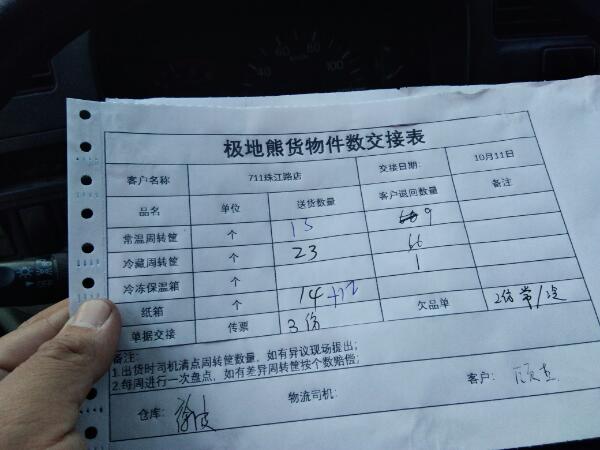 40 80 100
极地熊货物件数交接表
客户名称 711珠江路店 交接日期: 10月11日
品名 单位 送货数量 客户退回数量 备注
常温周转筐 个 15 9
冷藏周转筐 个 23 66
冷冻保温箱 个 1
纸箱 个 14 +12
单据交接 传票 3份 欠品单 2份 常/冷
备注:
1.出货时司机清点周转筐数量,如有异议现场提出;
2.每周进行一次盘点,如有差异周转筐按个数赔偿;
仓库: 物流司机: 客户: